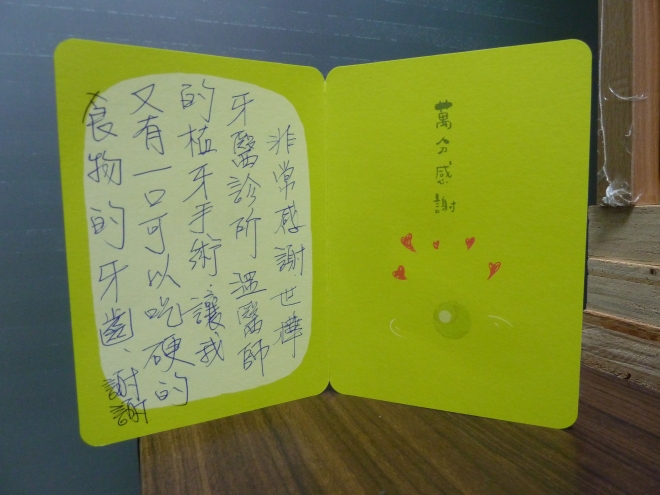 非常感謝世樺
牙醫診所 溫醫師
的植牙手術、讓我
又有一口可以吃硬的
食物的牙齒、謝謝
萬分感謝